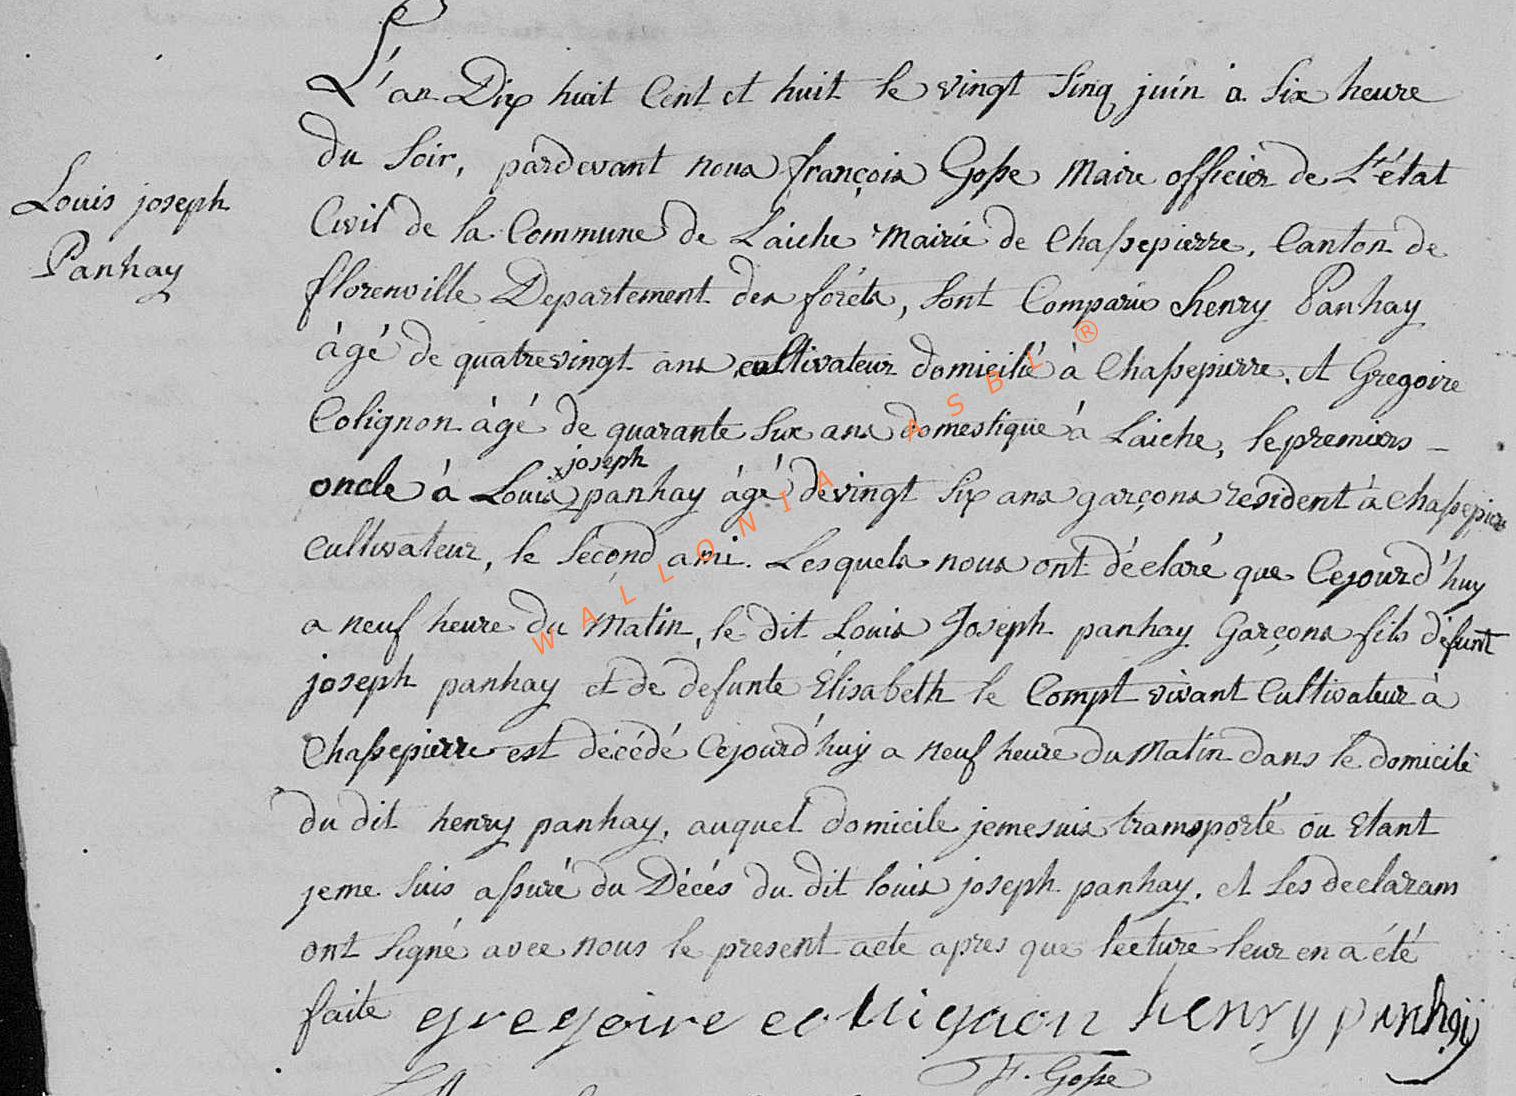 Louis joseph
Panhay
L'an Dix huit Cent et huit le vingt Sinq juin à Six heure
du Soir, pardevant nous françois Gosse Maire officier de L'état
Civil de la Commune de Laiche Mairie de Chassepierre, Canton de
florenville Departement des foréts, Sont Comparu henry Panhay
âgé de quatrevingt ans cultivateur domicilié à Chassepierre. et Gregoire
Colignon âgé de quarante Six ans domestique à Laiche, le premiers
joseph
oncle à Louis panhay âgé de vingt Six ans garçons resident à Chassepiere
cultivateur, le Second ami. Lesquels nous ont déclaré que Cejourd'huy
a neuf heure du Matin, le dit Louis Joseph panhay Garçons fils défunt
joseph panhay et de defunte Élisabeth le Compt vivant Cultivateur à
Chassepierre est décédé Cejourd'huy a neuf heure du Matin dans le domicile
du dit henry panhay, auquel domicile jemesuis transporté ou Etant
jeme Suis assuré du Décés du dit louis joseph panhay. et Les declarans
ont Signé avec nous le present acte apres que lecture leur en a été
faite gregoire collignon henry panhaij
F. Gosse
WALLONIA ASBL ®